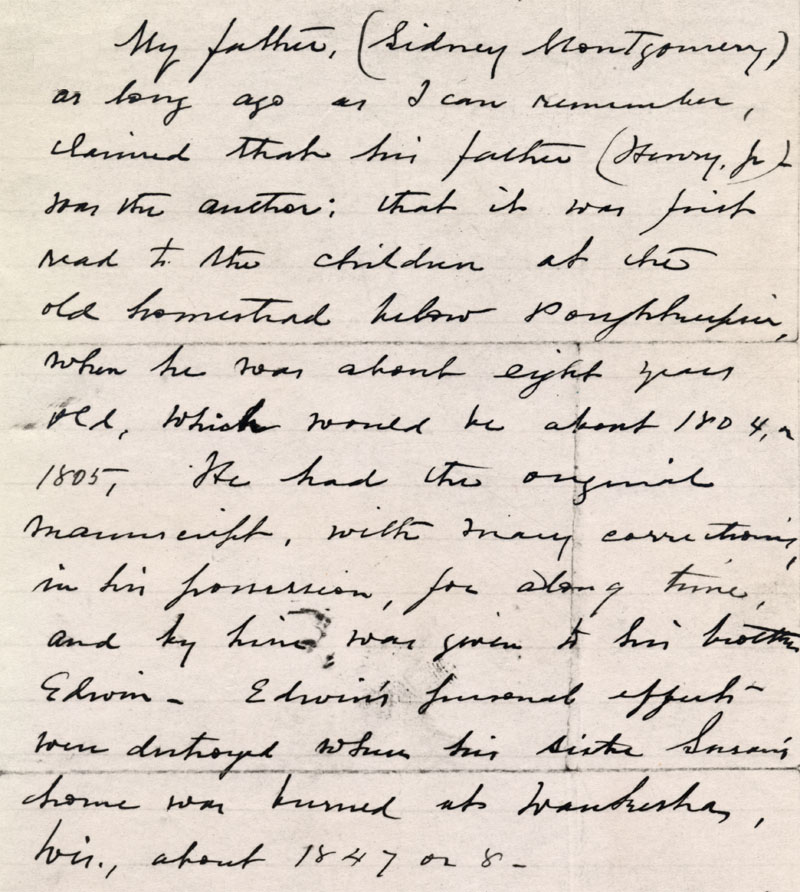 My father, (Sidney Montgomery,)
as long ago as I can remember,
claimed that his father (Henry, Jr.)
was the author; that it was first
read to the children at the
old homestead below Poughkeepsie,
when he was about eight years
old, which would be about 1804, or
1805, He had the original
manuscript, with many corrections,
in his possession, for a long time,
and by him was given to his brother
Edwin – Edwin's personal effects
were destroyed when his sister Susan's
home was burned at Waukesha,
Wis., about 1847 or 8 –